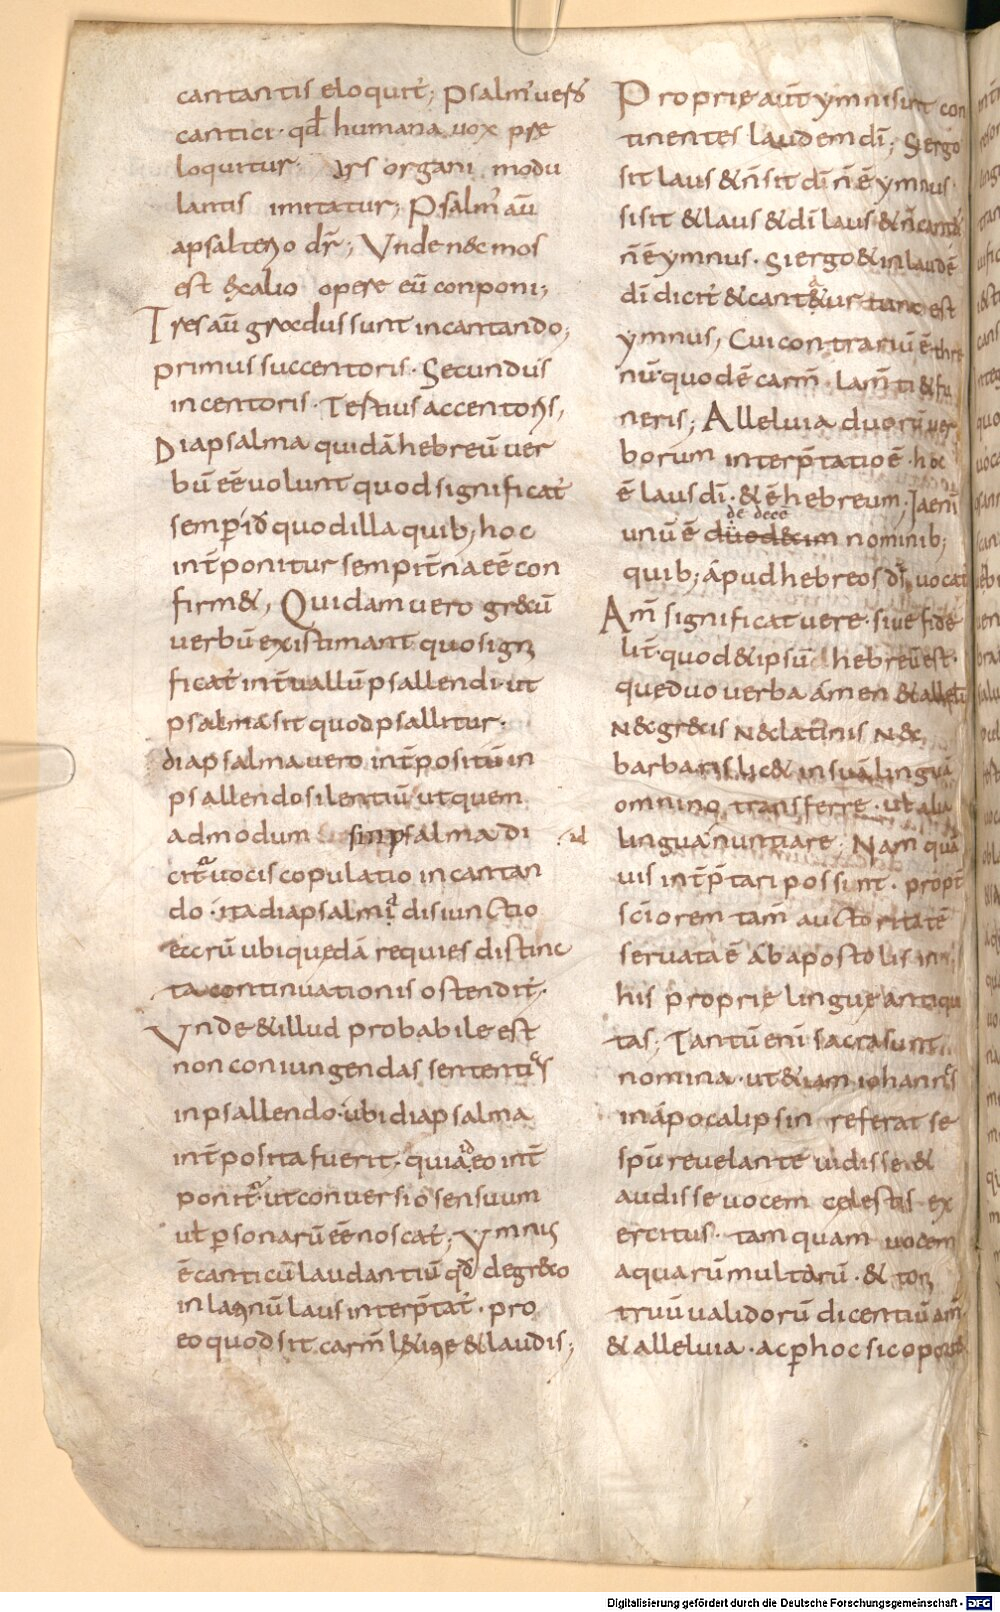 cantantis eloquit̄; Psalm' ūero
cantici· qd̄ humana uox pre
loquitur· Ars organi modu
lantis imitatur; Psalm' aū
apsalterio dr̄; Unde nec mos
est ex alio opere eū conponi;
Tres aū gradus sunt incantando;
primus succentoris· Secundus
incentoris· Tertius accentoris;
Diapsalma quidā hebreū uer
bū eē uolunt quod significat
semp id quod illa quib; hoc
int̄ponitur sempit̄na eē con
firm&; Quidam uero grecū
uerbū existimant quo signi
ficat̄ int̄uallū psallendi· ut
psalma sit quod psallitur·
diapsalma uero int̄positū in
psallendo silentiū ut quem
admodum sinpsalma di
citr̄ uocis copulatio in cantan
do· ita diapsalma disiunctio
eorū ubi quedā requies distinc
ta continuationis ostendit̄·
Unde & illud probabile est
non coniungendas sententias
inpsallendo· ubi diapsalma
int̄posita fuerit· quia id eo int̄
ponit̄· ut conuersio sensuum
ut̄ p sonarū eē noscat̄; Ymnus
ē canticū laudantiū qd̄ de greco
in latinū laus interp̄tat̄· pro
eo quod sit carm̄ l&itie & laudis;
Proprie aūt ymni sunt con
tinentes laudem dī; Si ergo
sit laus & n̄ sit dī n̄ ē ymnus·
si sit & laus & dī laus & n̄ cant&
n̄ ē ymnus· Si ergo & in laudē
dī dicit̄ & cant&ur tunc est
ymnus; Cui contrariū ē thre
nū quod ē carm̄· lam̄ti & fu
neris; Alleluia duorū uer
borum interp̄tatio ē· hoc
ē laus dī· & ē hebreum· Ia enī
de dece
unū ē duod&cim nominib;
quib; apud hebreos ds̄ uocat̄
Am̄ significat uere· siue fide
lit̄· quod & ipsū hebreū est·
que duo uerba amen & allelu
nec grecis nec latinis nec
barbaris lic& in suā linguā
omnino transferre· ut̄ alia
lingua nuntiare; Nam quā
uis int̄p̄tari possunt· propt̄
sc̄iorem tam̄ auctoritatē
seruata ē ab apostolis in
his proprie lingue antiqui
tas; Tantū enī sacra sunt
nomina· ut & iam iohannes
in apocalipsin referat se
sp̄u reuelante uidisse &
audisse uocem celestis ex
ercitus· tam quam uocem
aquarū multarū· & toni
truū ualidorū dicentiū am̄
& alleluia· ac p hoc sic oport&